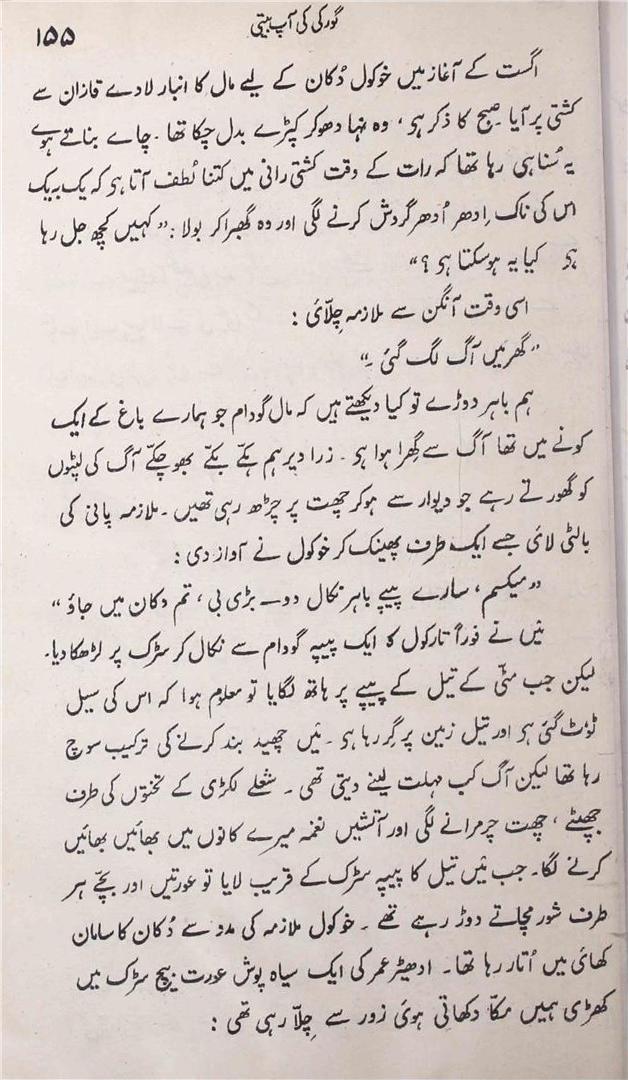 گورکی کی آپ بیتی
۱۵۵
اگست کے آغاز میں خوکول دُکان کے لیے مال کا انبار لادے قازان سے
کشتی پر آیا۔ صبح کا ذکر ہی، وہ نہا دھوکر کپڑے بدل چکا تھا۔ چاے بناتے ہوے
یہ سُنا ہی رہا تھا کہ رات کے وقت کشتی رانی میں کتنا لُطف آتا ہی کہ یک بہ یک
اس کی ناک اِدھر اُدھر گردش کرنے لگی اور وہ گھبرا کر بولا: ”کہیں کچھ جل رہا
ہی کیا یہ ہوسکتا ہی؟“
اسی وقت آنگن سے ملازمہ چِلّائ:
”گھر میں آگ لگ گئ۔“
ہم باہر دوڑے تو کیا دیکھتے ہیں کہ مال گودام جو ہمارے باغ کے ایک
کونے میں تھا آگ سے گِھرا ہوا ہی۔ زرا دیر ہم ہکّے بکّے بھوچکّے آگ کی لپٹوں
کو گھورتے رہے جو دیوار سے ہوکر چھت پر چڑھ رہی تھیں۔ ملازمہ پانی کی
بالٹی لائ جسے ایک طرف پھینک کر خوکول نے آواز دی:
”میکسم، سارے پیپے باہر نکال دو۔ بڑی بی، تم دکان میں جاؤ“
مَیں نے فوراً تارکول کا ایک پیپہ گودام سے نکال کر سڑک پر لڑھکا دیا۔
لیکن جب مٹّی کے تیل کے پیپے پر ہاتھ لگایا تو معلوم ہوا کہ اس کی سیل
ٹوٹ گئ ہی اور تیل زمین پر گِر رہا ہی۔ مَیں چھید بند کرنے کی ترکیب سوچ
رہا تھا لیکن آگ کب مہلت لینے دیتی تھی۔ شعلے لکڑی کے تختوں کی طرف
جھپٹے، چھت چرمرانے لگی اور آتشیں نغمہ میرے کانوں میں بھائیں بھائیں
کرنے لگا۔ جب مَیں تیل کا پیپہ سڑک کے قریب لایا تو عورتیں اور بچّے ہر
طرف شور مچاتے دوڑ رہے تھے۔ خوکول ملازمہ کی مدد سے دُکان کا سامان
کھائ میں اُتار رہا تھا۔ ادھیڑ عمر کی ایک سیاہ پوش عورت بیچ سڑک میں
کھڑی ہمیں مکّا دکھاتی ہوئ زور سے چِلّا رہی تھی: